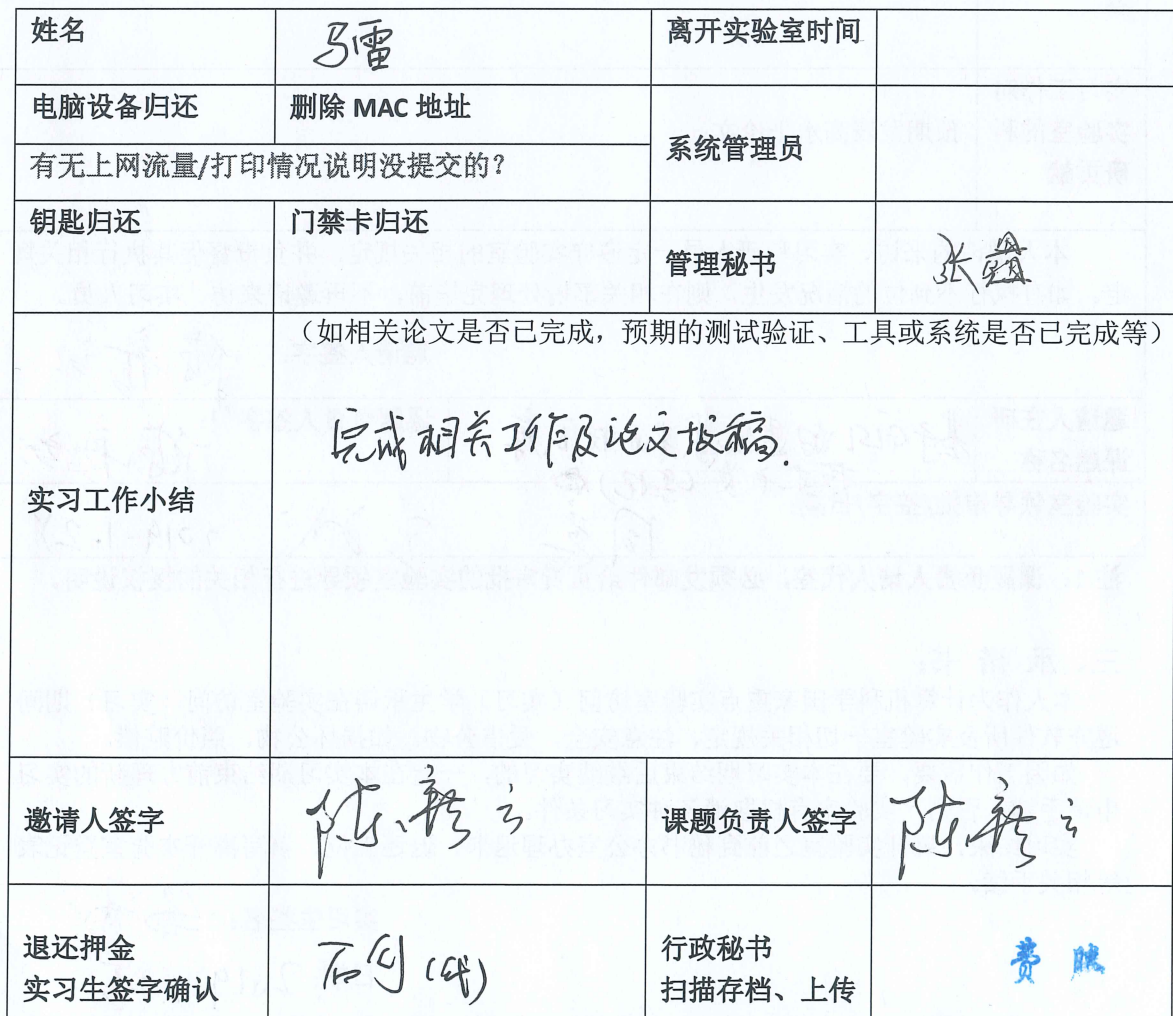 姓名
马雷
离开实验室时间
电脑设备归还
删除 MAC 地址
系统管理员
有无上网流量/打印情况说明没提交的?
钥匙归还
门禁卡归还
管理秘书
张
实习工作小结
（如相关论文是否已完成，预期的测试验证、工具或系统是否已完成等）
完成相关工作及论文投稿.
邀请人签字
陆
课题负责人签字
陆
退还押金
实习生签字确认
石剑(代)
行政秘书
扫描存档、上传
费腾